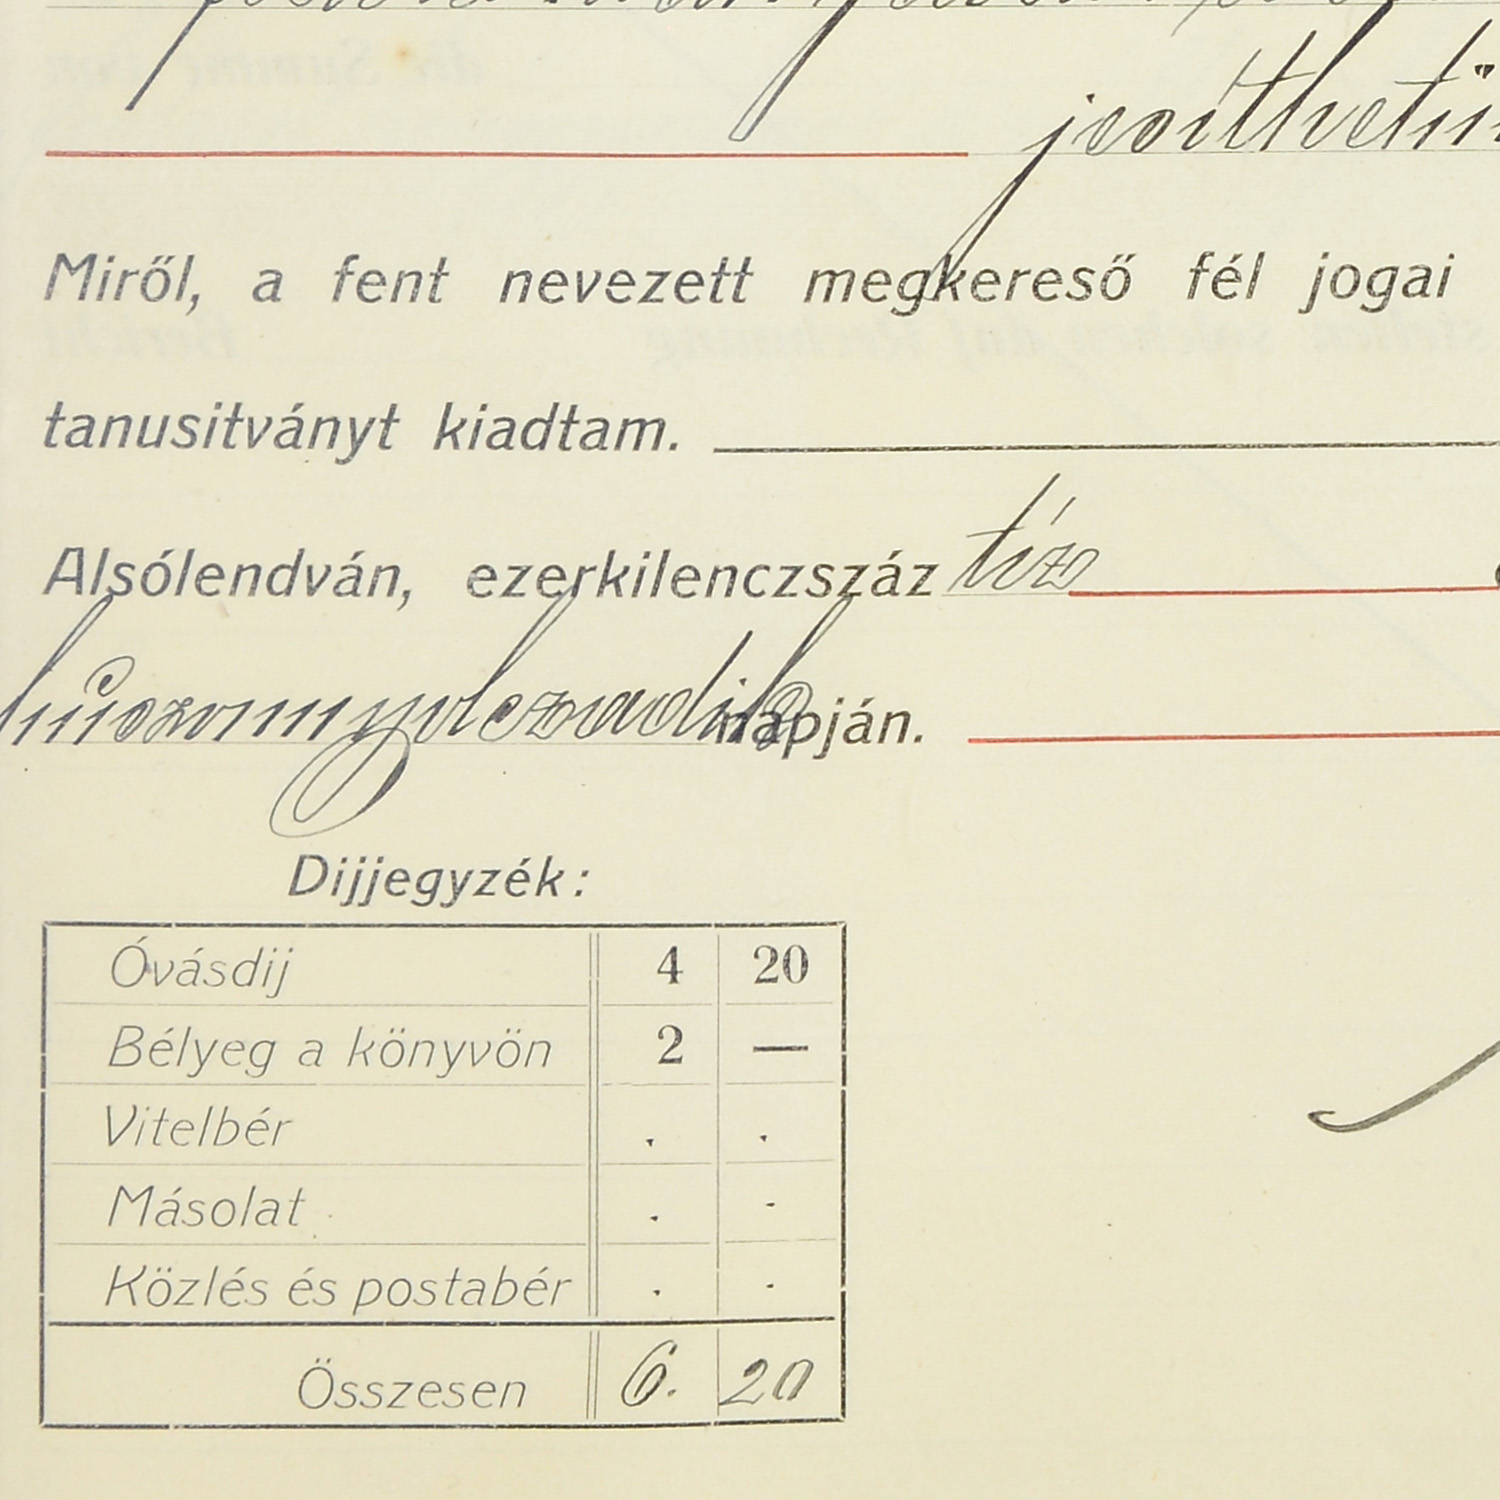 Miről, a fent nevezett megkereső fél jogai
tanusitványt kiadtam.
Alsólendván, ezerkilenczszáz tíz
húszonnyolczadik napján.
Dijjegyzék:
Óvásdij 4 20
Bélyeg a könyvön 2 —
Vitelbér . .
Másolat . .
Közlés és postabér . .
Összesen 6. 20